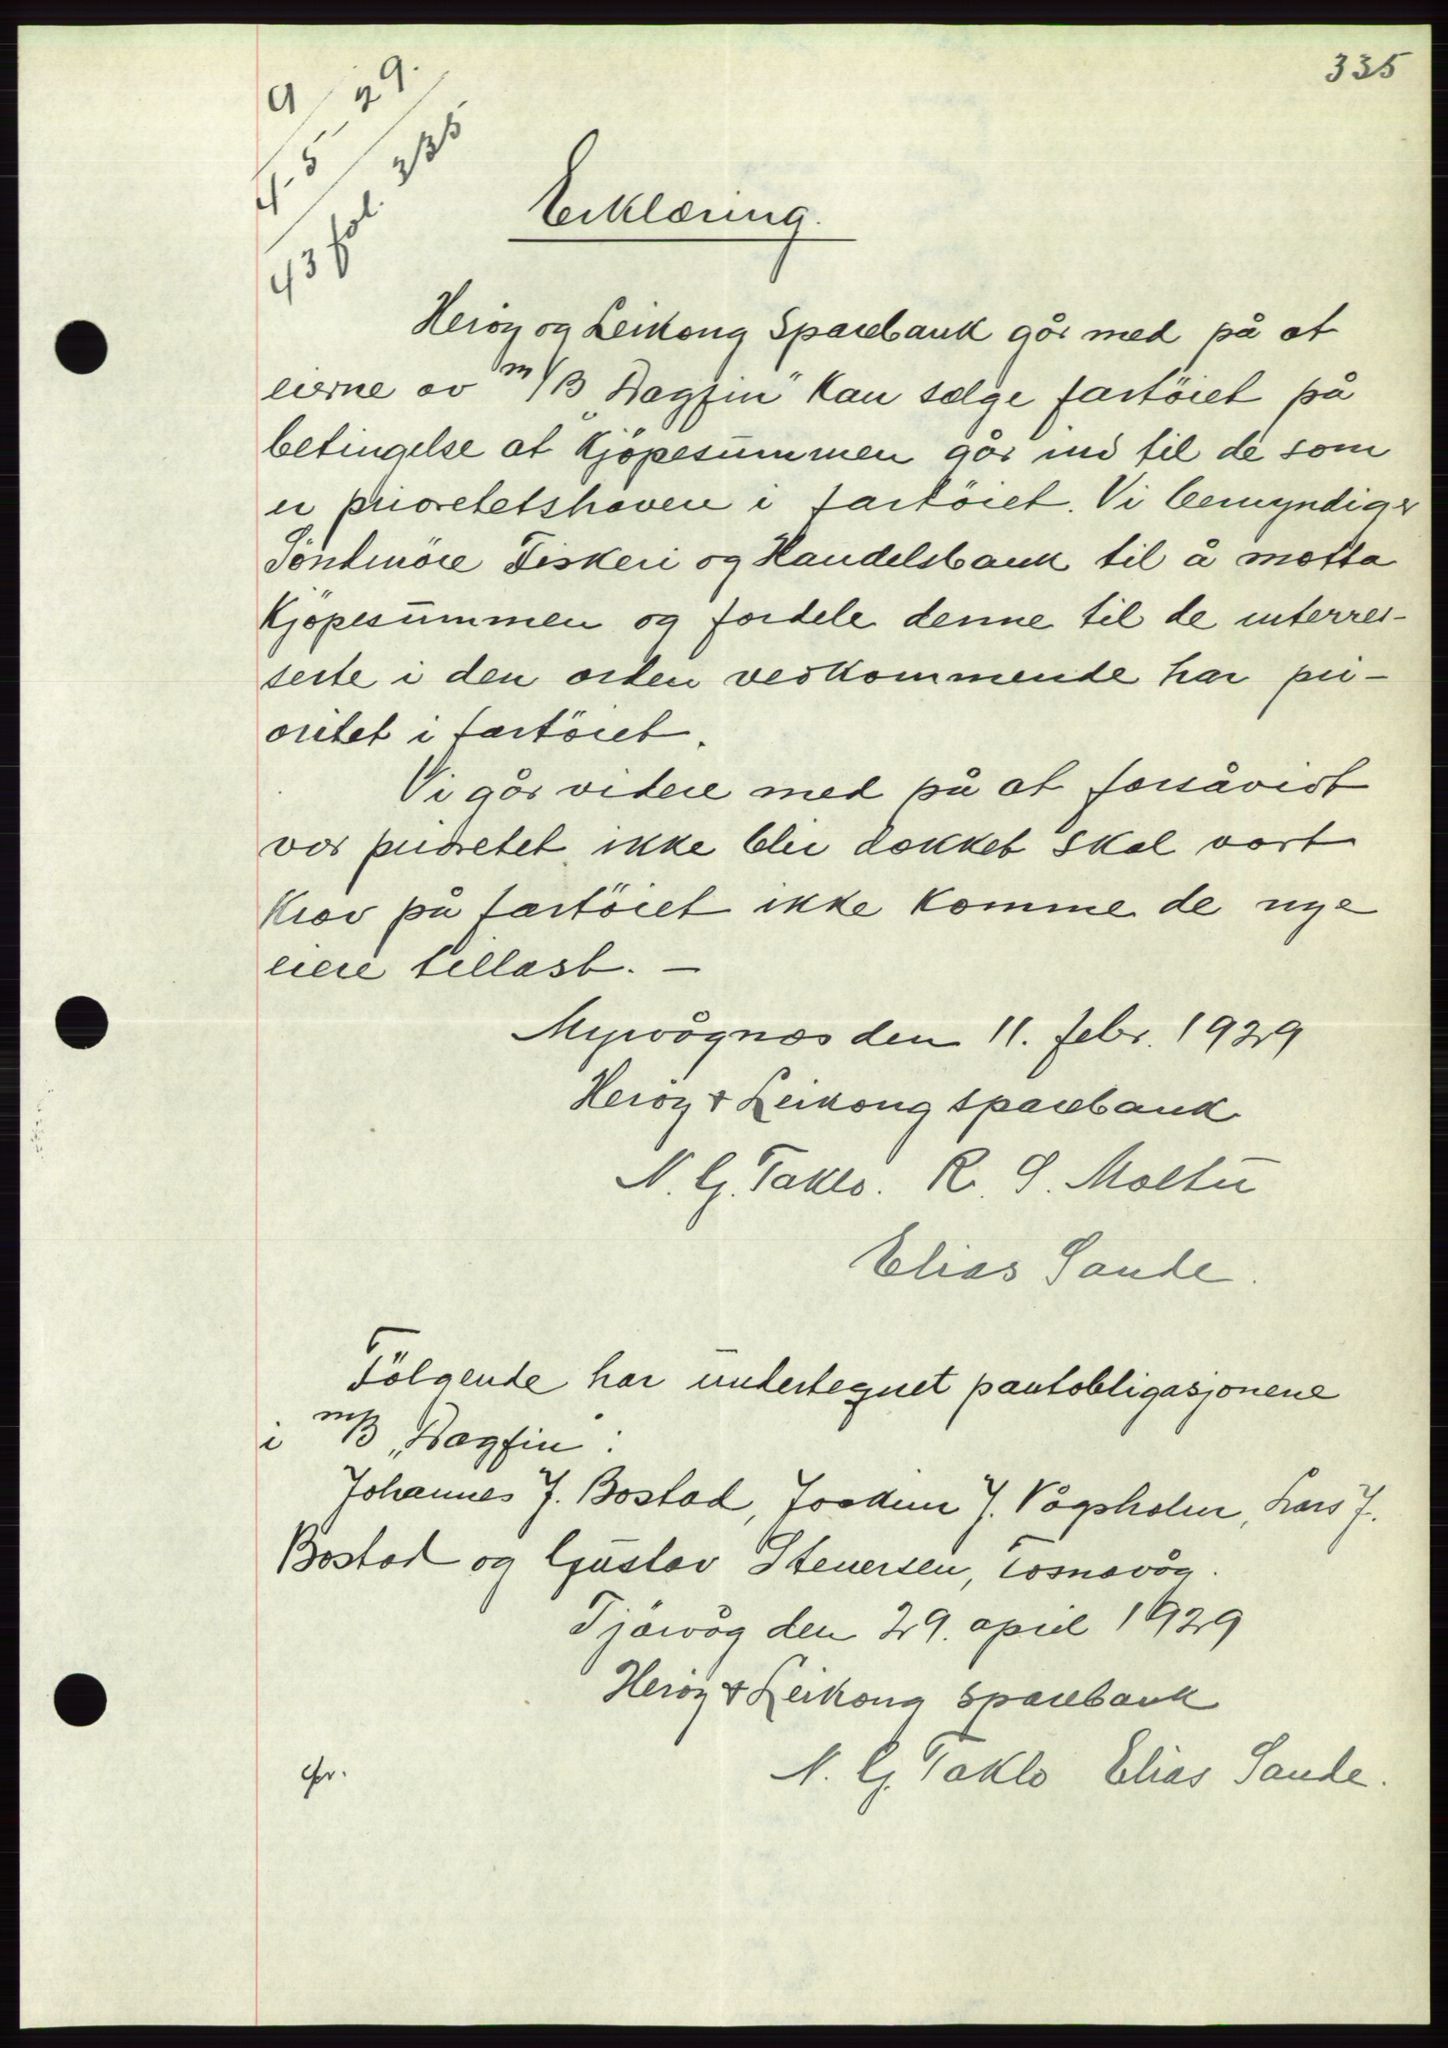 335
9
4-5-29.
43 fol. 335
Erklæring.
Herøy og Leikong Sparebank går med på at
eierne av m/B "Dagfin" kan sælge fartöiet på
betingelse at kjöpesummen går ind til de som
er prioretetshavere i fartöiet. Vi bemyndiger
Söndmöre Fiskeri og Handelsbank til å motta
kjöpesummen og fordele denne til de interres-
serte i den orden vedkommende har pri-
oritet i fartöiet.
Vi går videre med på at forsåvidt
vor prioretet ikke blir dækket skal vort
krav på fartöiet ikke komme de nye
eiere tillast. —
Myrvågnes den 11. febr. 1929
Herøy & Leikong sparebank
N. G. Taklo. R. S. Moltu
Elias Sande.
Fölgende har undertegnet pantobligasjonene
i m/B „Dagfin":
Johannes J. Bostad, Joakim J. Vågsholm, Lars J.
Bostad og Gustav Stenersen, Fosnavåg.
Tjörvåg den 29. april 1929
Herøy & Leikong sparebank
N. G. Taklo Elias Sande.